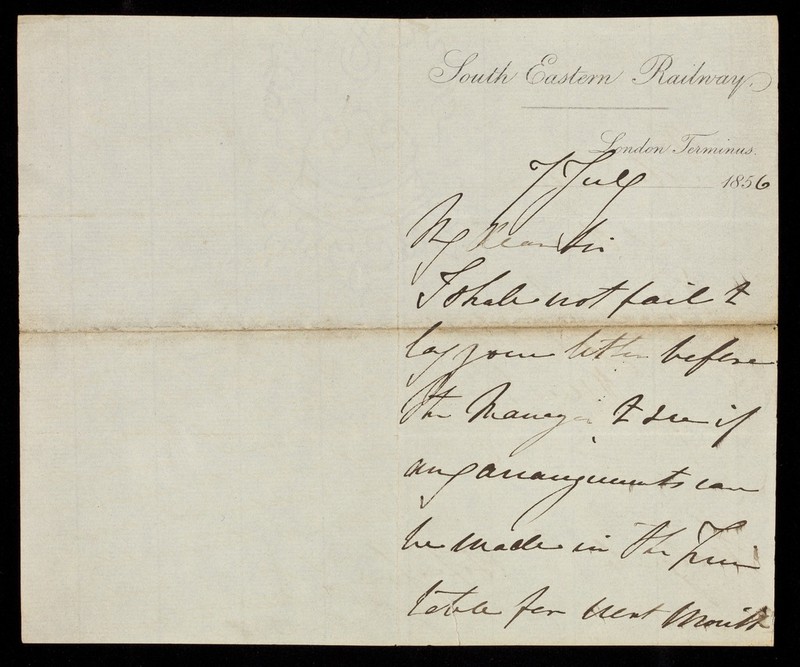 South Eastern Railway.
London Terminus.
7 July 1856
My Dear Sir
I shall not fail to
lay your letter before
the Manager & see if
any arrangements can
be made in the Time
table for next Month